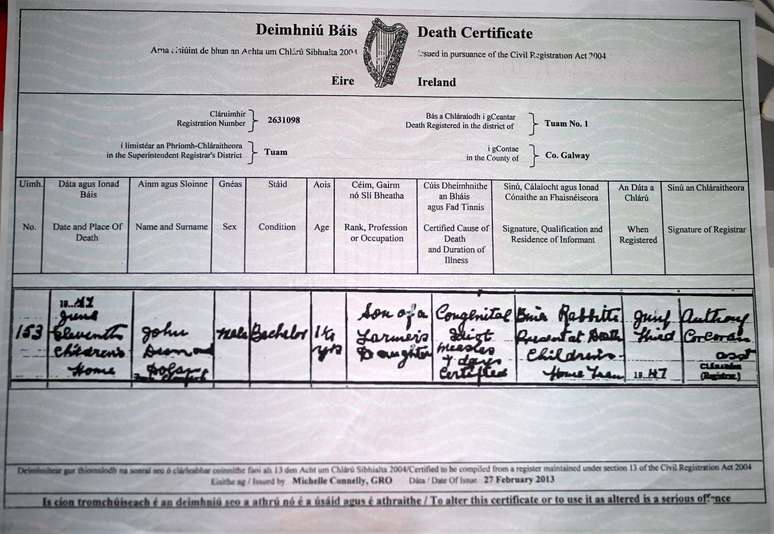 Deimhniú Báis
Death Certificate
Arna eisiúint de bhun an Achta um Chlárú Sibhialta 2004
Issued in pursuance of the Civil Registration Act 2004
Éire
Ireland
Cláruimhir
Registration Number
2631098
Bás a Chláraíodh i gCeantar
Death Registered in the district of
Tuam No. 1
i limistéar an Phríomh-Chláraitheora
in the Superintendent Registrar's District
Tuam
i gContae
in the County of
Co. Galway
Uimh.
No.
Dáta agus Ionad
Báis
Date and Place Of
Death
Ainm agus Sloinne
Name and Surname
Gnéas
Sex
Stáid
Condition
Aois
Age
Céim, Gairm
nó Slí Bheatha
Rank, Profession
or Occupation
Cúis Dheimhnithe
an Bháis
agus Fad Tinnis
Certified Cause of
Death
and Duration of
Illness
Sínú, Cáilíocht agus Ionad
Cónaithe an Fhaisnéiseora
Signature, Qualification and
Residence of Informant
An Dáta a
Chlárú
When
Registered
Sínú an Chláraitheora
Signature of Registrar
153
19..47
June
Eleventh
Children's
Home
John
Desmond
Dolan
Male
Bachelor
Yrs
Son of a
Farmer's
Daughter
Congenital
Idiot
measles
7 days
Certified
Rabbitte
Present at Death
Children's
Home Tuam
19..47
Anthony
Corcoran
asst
(Registrar.)
Deimhnítear gur tiomsaíodh na sonraí seo ó chlárleabhar coinnithe faoi alt 13 den Acht um Chlárú Sibhialta 2004/Certified to be compiled from a register maintained under section 13 of the Civil Registration Act 2004
Eisithe ag / Issued by Michelle Connelly, GRO Dáta / Date Of Issue 27 February 2013
Is cion tromchúiseach é an deimhniú seo a athrú nó é a úsáid agus é athraithe / To alter this certificate or to use it as altered is a serious offence